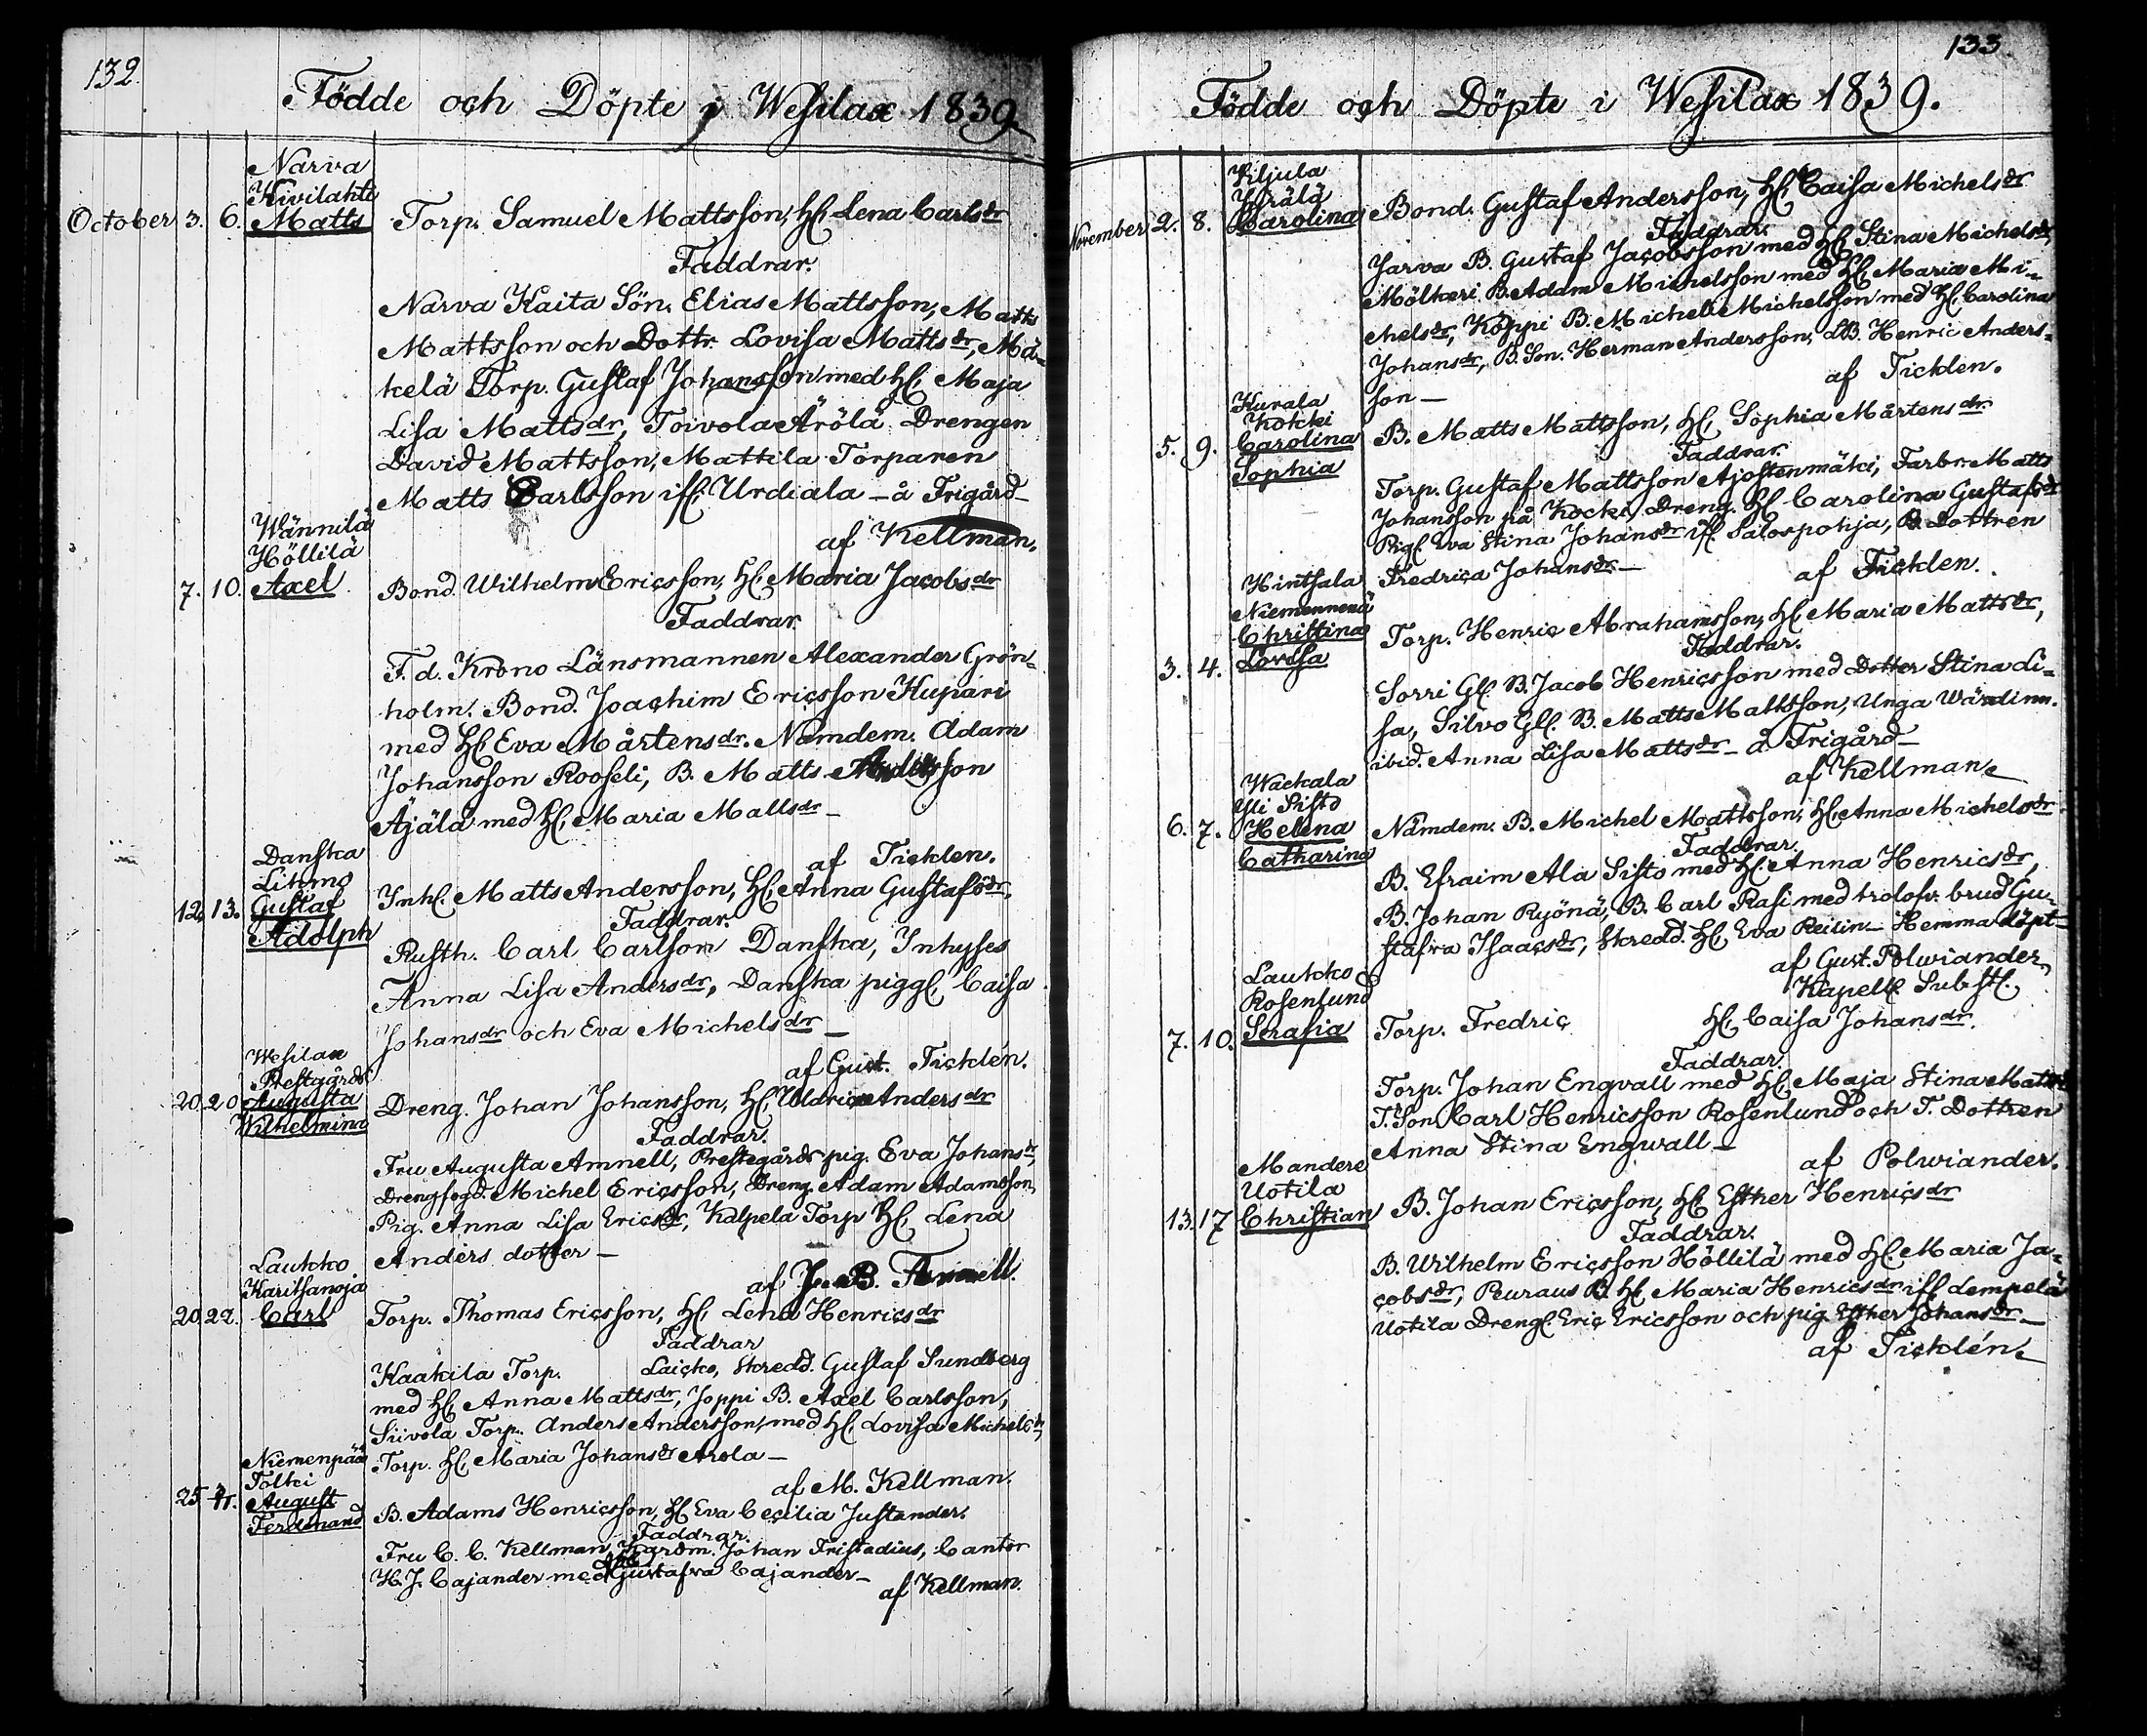 132.
Födde och Döpte i Wesilax 1839
Narva
Kivilahti
October 3. 6. Matts Torp. Samuel Mattsson, H. Lena Carlsdr
Faddrar.
Narva Kaita Sön. Elias Mattsson, Matts
Mattsson och Dottr. Lovisa Mattsdr, Mä-
kelä Torp. Gustaf Johansson med H. Maja
Lisa Mattsdr, Toivola Ärölä Drengen
David Mattsson, Mattila Torparen
Matts Carlsson ifr. Urdiala – å Frigård –
af Kellman.
Wännilä
Höllilä
7. 10. Axel Bond. Wilhelm Ericsson, H. Maria Jacobsdr
Faddrar.
F. d. Krono Länsmannen Alexander Grön-
holm. Bond. Joachim Ericsson Kupari
med H. Eva Mårtensdr. Nämdem. Adam
Johansson Rooseli, B. Matts
Äjälä med H. Maria Mattsdr –
af Ticklen.
Danska
Lihmo
12. 13. Gustaf Inh. Matts Andersson, H. Anna Gustafsdr,
Adolph
Faddrar.
Rusth. Carl Carlsson Danska, Inhyses
Anna Lisa Andersdr, Danska pigg. Caisa
Johansdr och Eva Michelsdr –
af Gust. Ticklén.
Wesilax
Prestgårds
20. 20. Augusta Dreng. Johan Johansson, H. Uldrica Andersdr
Wilhelmina
Faddrar.
Fru Augusta Amnell, Prestegårds pig. Eva Johansdr,
Drengfogd. Michel Ericsson, Dreng. Adam Adamsson,
Pig. Anna Lisa Ericsdr, Kalpela Torp H. Lena
Anders dotter –
af J. B. Amnell.
Laukko
Karitsanoja
20. 22. Carl Torp. Thomas Ericsson, H. Lena Henricsdr
Faddrar
Kaakila Torp. Laicko, Skredd. Gustaf Sundberg
med H. Anna Mattsdr, Joppi B. Axel Carlsson,
Siivola Torp. Anders Andersson, med H. Lovisa Michelsdr,
Torp. H. Maria Johansdr Arola –
af M. Kellman.
Niemenpää
Tolki
25 August B. Adams Henricsson, H. Eva Cecilia Justander.
Ferdinand
Faddrar.
Fru C. C. Kellman, Johan Fristadius, Cantor
H. J. Cajander med Gustafva Cajander –
af Kellman.
133.
Födde och Döpte i Wesilax 1839.
Kiljula
Yrälä
November 2. 8. Carolina Bond. Gustaf Andersson, H. Caisa Michelsdr
Faddrar.
Jarva B. Gustaf Jacobsson med H. Stina Michelsdr,
Mölkeri B. Adam Michelsson med H. Maria Mi-
chelsdr, Köppi B. Michel Michelsson med H. Carolina
Johansdr, B. Son. Herman Andersson, B. Henric Anders-
son –
af Ticklen.
Kurala
Kokki
5. 9. Carolina B. Matts Mattsson, H. Sophia Mårtensdr
Sophia
Faddrar.
Torp. Gustaf Mattsson Ajostenmäki, Farbr. Matts
Johansson på Kocki, Dreng. H. Carolina Gustafsdr
Pig. Eva Stina Johansdr ifr. Salospohja, B Dottren
Fredrica Johansdr. –
af Ticklen.
Hinsala
Niemennenä
Christina Torp. Henric Abrahamsson, H. Maria Mattsdr,
3. 4. Lovisa
Faddrar.
Sorri Gl. B. Jacob Henricsson med Dotter Stina Li-
sa, Silvo Gl. B. Matts Mattsson, Unga Wärdinn.
ibid. Anna Lisa Mattsdr – å Frigård –
af Kellman –
Wackala
Yli Sisto
6. 7. Helena Nämdem. B. Michel Mattsson, H. Anna Michelsdr.
Catharina
Faddrar.
B. Efraim Ala Sisto med H. Anna Henricsdr,
B. Johan Ryönä, B. Carl Rasi med trolofv. brud Gu-
stafva Isaacsdr, Skredd. H. Eva Reilin – Hemma döpt –
af Gust. Polviander,
Kapell Subst.
Laukko
Rosenlund
7. 10. Serafia Torp. Fredric H. Caisa Johansdr.
Faddrar.
Torp. Johan Engvall med H. Maja Stina Mattsdr
T. Son Carl Henricsson Rosenlund och T. Dottren
Anna Stina Engwall –
af Polwiander.
Mandere
Uotila
13. 17 Christian B. Johan Ericsson, H. Esther Henricsdr
Faddrar.
B. Wilhelm Ericsson Höllilä med H. Maria Ja-
cobsdr, Peuraus B. H. Maria Henricsdr ifr. Lempelä
Uotila Dreng. Eric Ericsson och pig. Esther Johansdr –
af Ticklén –